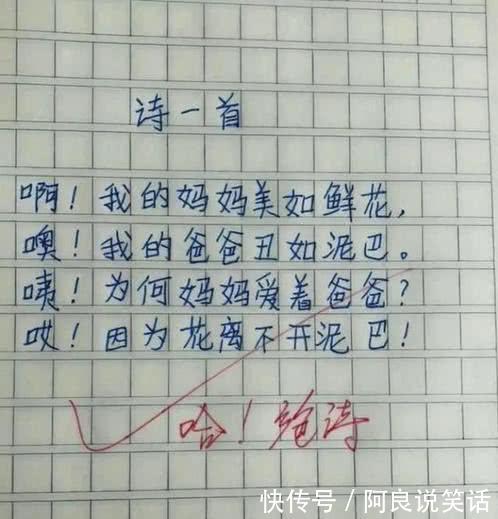 诗一首
啊！我的妈妈美如鲜花，
噢！我的爸爸丑如泥巴。
咦！为何妈妈爱着爸爸？
哎！因为花离不开泥巴！
哈！绝诗
快传号/阿良说笑话